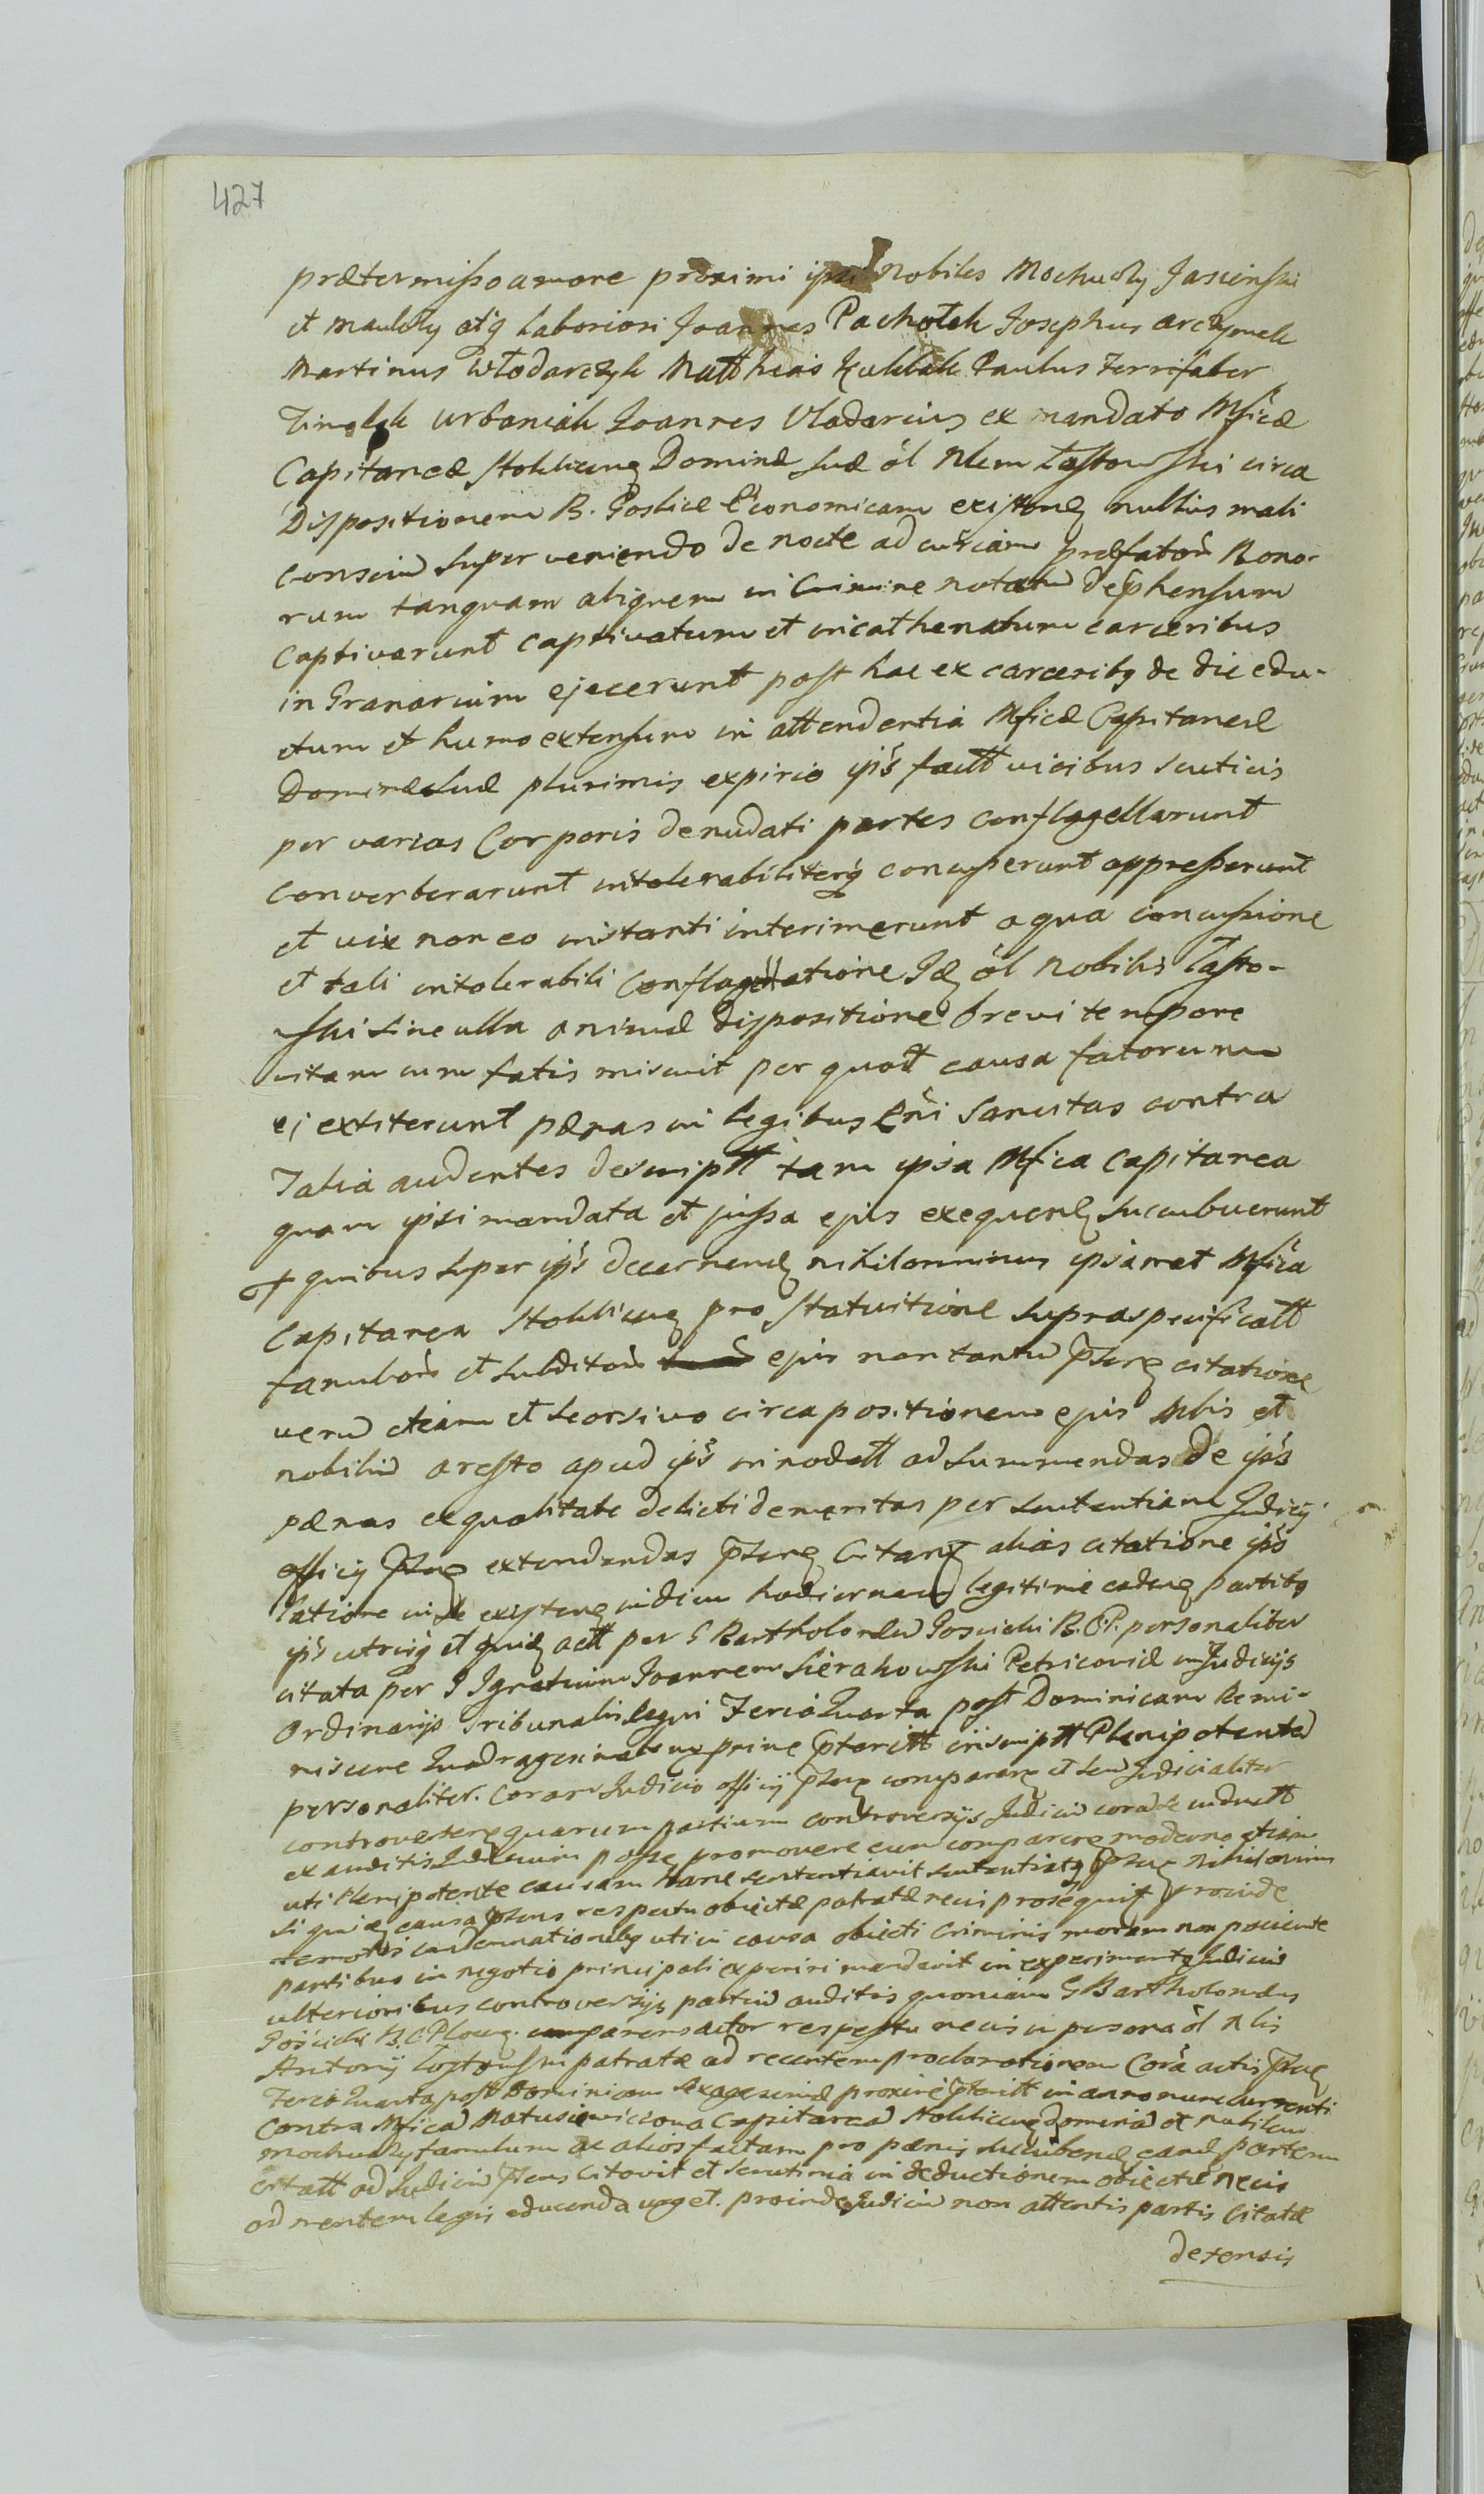 427
prætermisso amore proximi ipsi Nobiles Mochucky Jasienski
et Maulsky atq laboriosi Joannes Pachołek Josephus arczymek
Martinus Włodarczyk Matthias Kublik Paulus Ferrifaber
Urbaniak Joannes Vladarius ex mandato Mficæ
Capitaneæ Stokliceng Dominæ suæ ol Nlem Tastowski circa
Dispositionem B. Goslice Economicam existend nullius mali
consciū super veniendo de nocte ad curiam præfator Bono-
rum tanquam aliquem in Crimine notatū dephensum
captivarunt captivatum et incathenatum carceribus
in Granarium ejecerunt post hac ex carceribq de die edu-
ctum et humo extensum in attendentia Mficæ Capitaneæ
Dominæ suæ plurimis expirio ips factt vicibus scuticis
per varias Corporis denudati partes conflagellarunt
converberarunt intolerabiliterq concusserunt oppresserunt
et vix non eo instanti interimerunt a qua concussione
et tali intolerabili conflagellatione Id ol Nobilis Tasto-
wski sine ulla animæ dispositione brevi tempore
vitam cum fatis miscuit per quod causa fatorum
ei extiterunt pænas in legibus Rni sancitas contra
Talia audentes descriptt tam ipsa Mfica Capitanea
quam ipsi mandata et jussa ejus exequend succubuerunt
quibus super ips decernend nihilominus ipsamet Mfica
Capitanea Stokliceng pro statuitione supraspecificatt
famulor et subditor ejus non tantū pteng citatione
verū etiam et seorsivo circa positionem ejus Mbis et
nobiliū aresto apud ips innodatt ad summendas de ips
pænas ex qualitate delicti demeritas per sententiam Judicij
officij pteng extendendas pteng Citand alias citatione ipo
latione inde existeng indiem hodiernam legitime cadeng partibq
ips utriusq et quidq actt per G Bartholomæū Gosicki B. C. P. personaliter
citata per G Ignatium Joannem Sierakowski Petricoviæ in Judicijs
Ordinarijs Tribunalis Regni Feria Quarta post Dominicam Remi-
niscere Quadragesimaleng prime pteritt inscriptt Plenipotentē
personaliter. Coram Judicio officij pteng comparend et seu Judicialiter
controvertend quarum partium controversijs Judiciū corā se inductt
exauditis Judicium posse promovere eum comparere moderno etiam
uti Plenipotente causam hanc sententiavit sententiatq pteng nihilominus
Si quid causa ptens respectu obiectæ patratæ necis prosequit proinde
remotis condemnationibq uti in causa obiecti criminis moram non paciente
partibus in negotio principali experiri mandavit in experimento Judiciū
ulterioribus controversijs partiū auditis quoniam G Bartholomæus
Gosicki B. C. Ploceng. comparens actor respectu necis in persona ol Nlis
Antonij Tostowski patratæ ad recentem proclamationem Corā actis pteng
Feria Quarta post Dominicam Sexagesimæ proxime pteritt in anno nunc currenti
Contra Mficā Matusiewiciowa Capitaneā Stokliceng Dominā et Nobilem
Mochucky famulum ac alios factam pro pænis succubend eand partem
citatt ad Judiciū ptens Citavit et scrutinia in deductionem obiectæ necis
ad mentem legis educenda urget. proinde Judiciū non attentis partis Citatæ
defensis